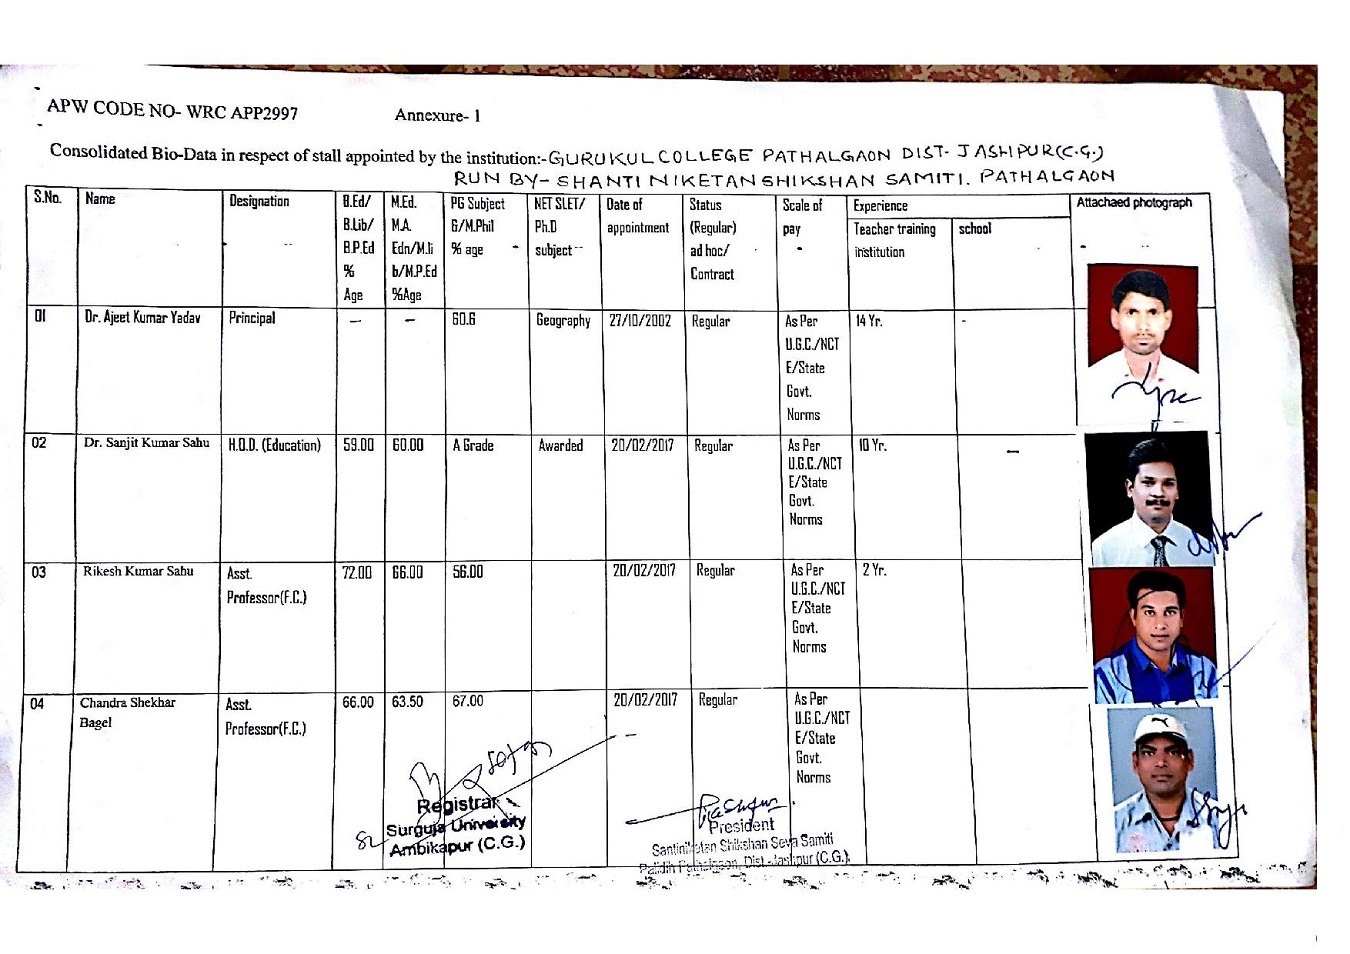 APW CODE NO- WRC APP2997 Annexure- 1
Consolidated Bio-Data in respect of stall appointed by the institution:-GURUKUL COLLEGE PATHALGAON DIST- JASHPUR(C.G.)
RUN BY- SHANTI NIKETAN SHIKSHAN SAMITI. PATHALGAON
S.No.
Name
Designation
B.Ed/
B.Lib/
B.P.Ed
%
Age
M.Ed.
M.A.
Edn/M.li
b/M.P.Ed
%Age
PG Subject
&/M.Phil
% age
NET SLET/
Ph.D
subject
Date of
appointment
Status
(Regular)
ad hoc/
Contract
Scale of
pay
Experience
Teacher training
institution
school
Attachaed photograph
01
Dr. Ajeet Kumar Yadav
Principal
—
—
60.6
Geography
27/10/2002
Regular
As Per
U.G.C./NCT
E/State
Govt.
Norms
14 Yr.
-
02
Dr. Sanjit Kumar Sahu
H.O.D. (Education)
59.00
60.00
A Grade
Awarded
20/02/2017
Regular
As Per
U.G.C./NCT
E/State
Govt.
Norms
10 Yr.
—
03
Rikesh Kumar Sahu
Asst.
Professor(F.C.)
72.00
66.00
56.00
20/02/2017
Regular
As Per
U.G.C./NCT
E/State
Govt.
Norms
2 Yr.
04
Chandra Shekhar
Bagel
Asst.
Professor(F.C.)
66.00
63.50
67.00
20/02/2017
Regular
As Per
U.G.C./NCT
E/State
Govt.
Norms
Registrar
Surguja University
Ambikapur (C.G.)
President
Santiniketan Shikshan Seva Samiti
Dist.-Jashpur (C.G.)